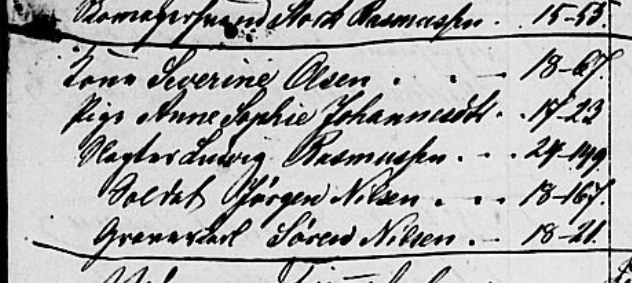 Skomagersvend Stork Rasmussen . . 15-53.
Kone Severine Olsen . . . 18-67.
Pige Anne Sophie Johannesdtr . . 17-23
Slagter Ludvig Rasmussen . . . 24-149.
Soldat Jørgen Nilsen . . . 18-167.
Søren Nilsen . . 18-21.